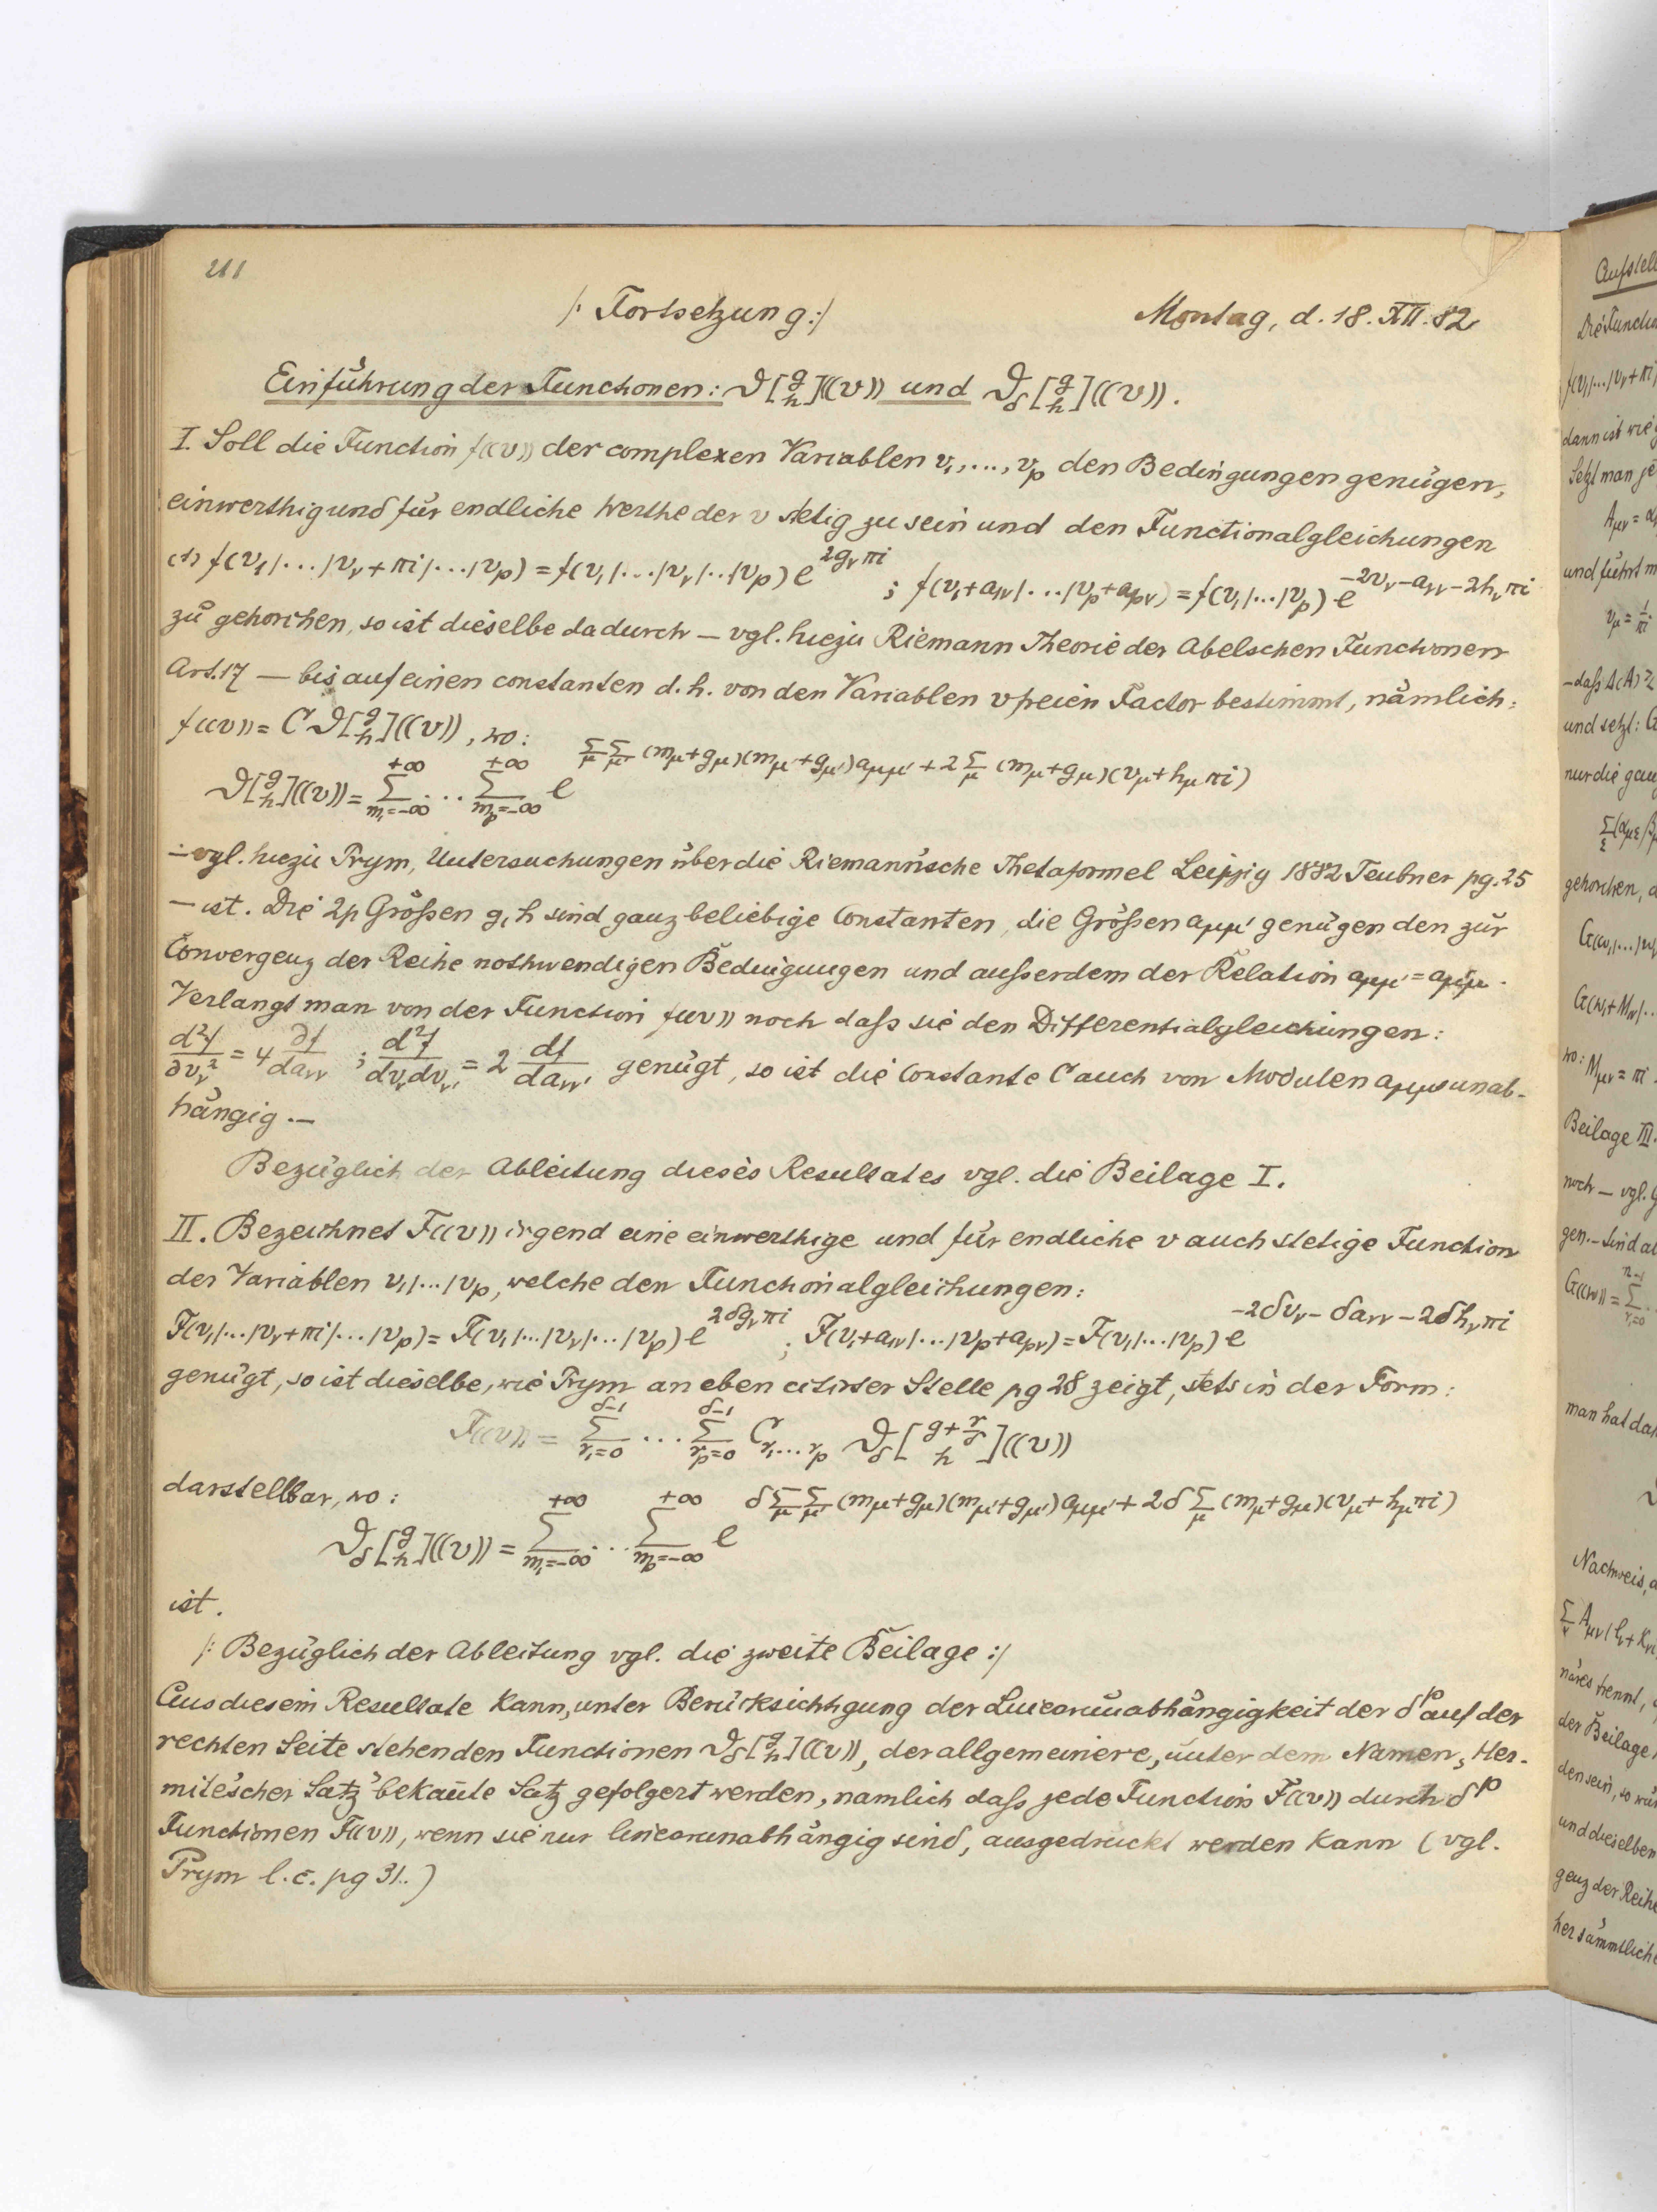 211
/: Fortsetzung :/ Montag, d. 18. XII. 82
Einführung der Functionen: ϑ[g h]((v)) und ϑ_δ[g h]((v)).
I. Soll die Function f((v)) der complexen Variablen v₁, ..., v_p den Bedingungen genügen,
einwerthig und für endliche Werthe der v stetig zu sein und den Functionalgleichungen
(1) f(v₁|...|v_ν+πi|...|v_p) = f(v₁|...|v_ν|..|v_p) e^{2g_ν πi} ; f(v₁+a_{1ν}|...|v_p+a_{pν}) = f(v₁|...|v_p) e^{-2v_ν-a_{νν}-2h_ν πi}
zu gehorchen, so ist dieselbe dadurch — vgl. hiezu Riemann Theorie der Abelschen Functionen
Art. 17 — bis auf einen constanten d. h. von den Variablen v freien Factor bestimmt, nämlich:
f((v)) = C ϑ[g h]((v)), wo:
ϑ[g h]((v)) = Σ_{m₁=-∞}^{+∞} ... Σ_{m_p=-∞}^{+∞} e^{Σ_μ Σ_μ' (m_μ+g_μ)(m_μ'+g_μ')a_{μμ'} + 2Σ_μ (m_μ+g_μ)(v_μ+h_μ πi)}
— vgl. hiezu Prym, Untersuchungen über die Riemann'sche Thetaformel Leipzig 1882 Teubner pg. 25
— ist. Die 2p Größen g, h sind ganz beliebige Constanten, die Größen a_{μμ'} genügen den zur
Convergenz der Reihe nothwendigen Bedingungen und außerdem der Relation a_{μμ'} = a_{μ'μ}.
Verlangt man von der Function f((v)) noch daß sie den Differentialgleichungen:
∂²f/∂v_ν² = 4 ∂f/∂a_{νν} ; d²f/dv_ν dv_ν' = 2 df/da_{νν'} genügt, so ist die Constante C auch von Modulen a_{μμ'} unab-
hängig. —
Bezüglich der Ableitung dieses Resultates vgl. die Beilage I.
II. Bezeichnet F((v)) irgend eine einwerthige und für endliche v auch stetige Function
der Variablen v₁|...|v_p, welche den Functionalgleichungen:
F(v₁|...|v_ν+πi|...|v_p) = F(v₁|...|v_ν|...|v_p) e^{2δg_ν πi} ; F(v₁+a_{1ν}|...|v_p+a_{pν}) = F(v₁|...|v_p) e^{-2δv_ν - δa_{νν} - 2δh_ν πi}
genügt, so ist dieselbe, wie Prym an eben citirter Stelle pg 28 zeigt, stets in der Form:
F((v)) = Σ_{r₁=0}^{δ-1} ... Σ_{r_p=0}^{δ-1} C_{r₁...r_p} ϑ_δ[g+r/δ h]((v))
darstellbar, wo:
ϑ_δ[g h]((v)) = Σ_{m₁=-∞}^{+∞} ... Σ_{m_p=-∞}^{+∞} e^{δΣ_μ Σ_μ' (m_μ+g_μ)(m_μ'+g_μ')a_{μμ'} + 2δΣ_μ (m_μ+g_μ)(v_μ+h_μ πi)}
ist.
/: Bezüglich der Ableitung vgl. die zweite Beilage :/
Aus diesem Resultate kann, unter Berücksichtigung der Linearunabhängigkeit der δ^p auf der
rechten Seite stehenden Functionen ϑ_δ[g h]((v)), der allgemeinere, unter dem Namen „Her-
mite'scher Satz" bekannte Satz gefolgert werden, namlich daß jede Function F((v)) durch δ^p
Functionen F((v)), wenn sie nur linearunabhängig sind, ausgedrückt werden kann (vgl.
Prym l. c. pg 31.)
dann ist wie
Setzt man
A_{μν} =
und führt
und setzt: G
nur die
gehorchen,
wo: M_{μν} = πi
Beilage III.
noch — vgl.
man hat
Nachweis,
der Beilage
den sein, so
und dieselben
genz der Reihe
her sämmtliche